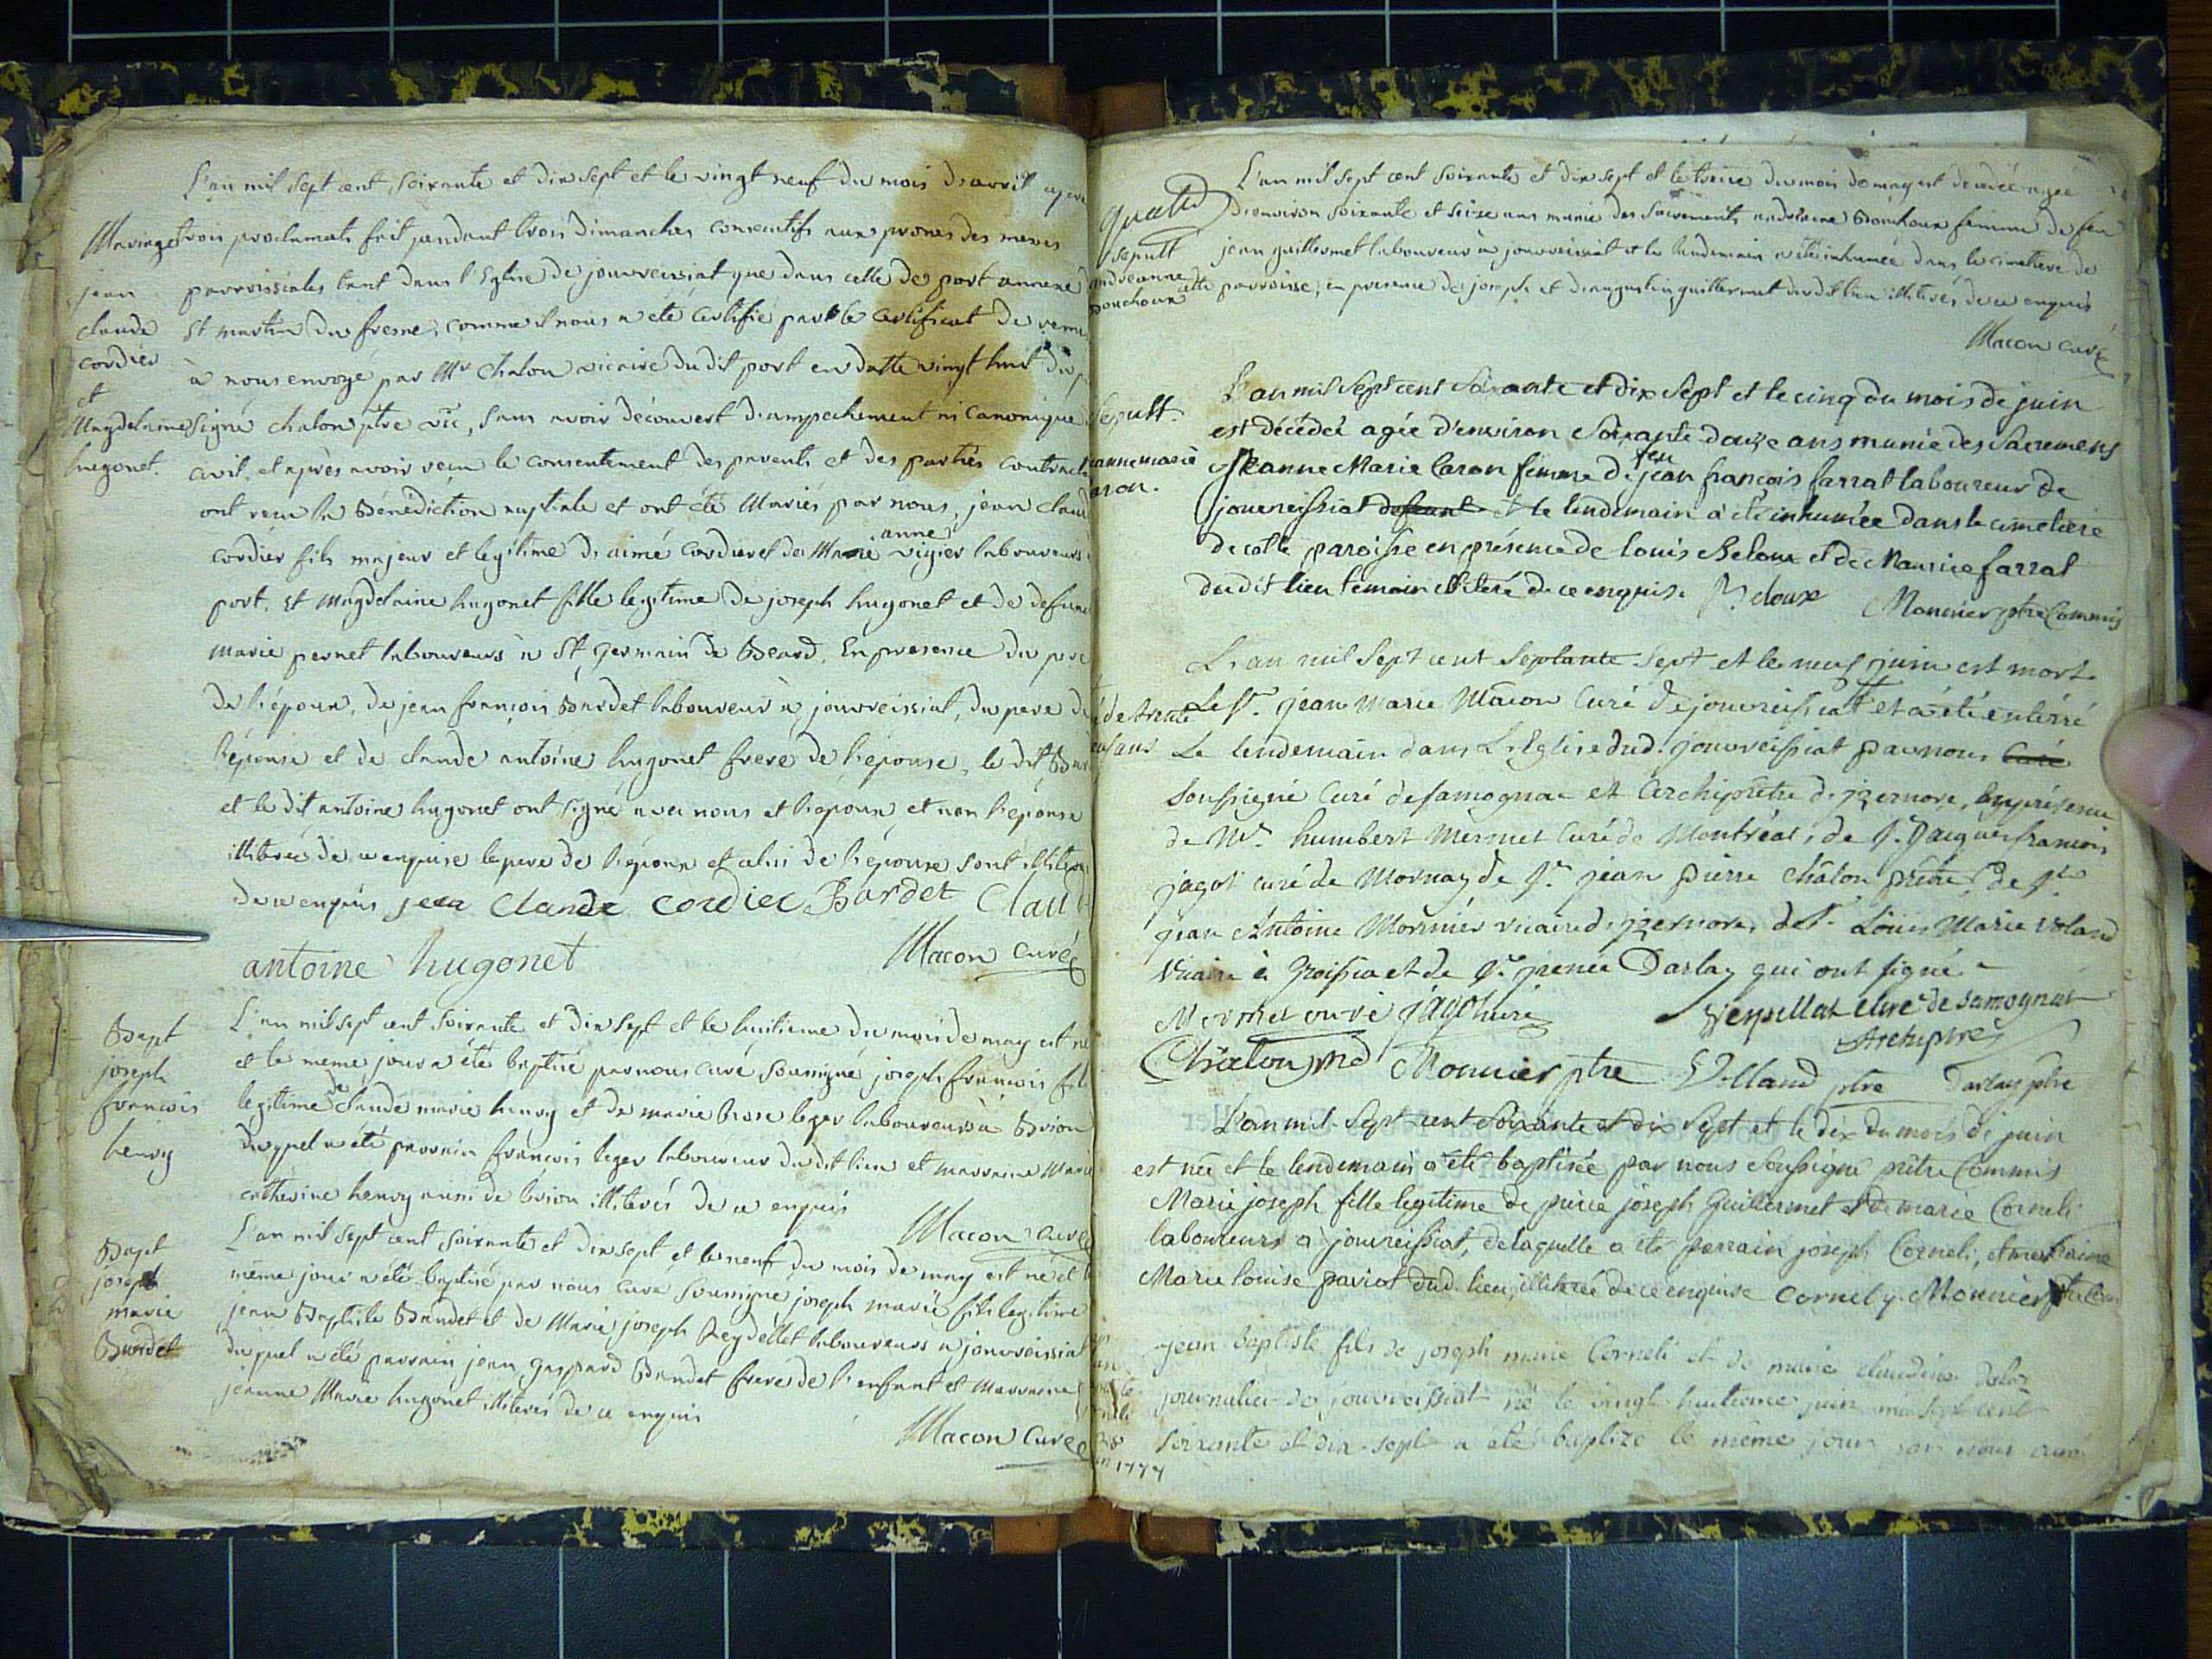 L'an mil sept cent soixante et dix sept et le vingt neuf du mois d'avril apres
Mariage
jean
claude
cordier
et
Magdelaine
hugonet.
trois proclamats fait pendant trois dimanches consecutifs aux prones des messes
parroissiales tant dans l'Eglise de jouvreissiat que dans celle de port annexe
St martin du fresne, comme il nous a été certifié par le certificat de remi
à nous envoyé par Mr chalon vicaire du dit port en datte vingt huit du
signé chalon ptre vic, sans avoir découvert d'ampechement ni canonique
civil. et après avoir reçu le consentement des parents et des parties contract
ont reçu la Bénédiction nuptiale et ont été Mariés par nous, jean claud
cordier fils majeur et legitime d'aimé cordier et de Marie anne vigier laboureurs
port. et Magdelaine hugonet fille legitime de joseph hugonet et de defun
marie pernet laboureurs à St germain de Beard. En presence du pere
de l'époux, de jean françois Bardet laboureur à jouvreissiat, du pere d
l'épouse et de claude antoine hugonet frere de l'épouse, le dit Bar
et le dit antoine hugonet ont signé avec nous et l'epoux et non l'épouse
illiterée de ce enquise le pere de l'époux et celui de l'épouse sont illiter
de ce enquis jean Claude cordier Bardet Claud
antoine hugonet Macon curé
Bapt
joseph
francois
henry
L'an mil sept cent soixante et dix sept et le huitieme du mois de may est né
et le meme jour a été baptisé par nous curé soussigné joseph françois fil
legitime de claude marie henry et de marie Brose leger laboureurs à Brion
duquel a été parrain françois leger laboureur du dit lieu et marraine Marie
catherine henry aussi de brion illiterés de ce enquis
Macon curé
Bapt
joseph
marie
Baudet
L'an mil sept cent soixante et dix sept et le neuf du mois de may est né et l
même jour a été baptisé par nous curé soussigné joseph marie fils legitime
jean Baptiste Baudet et de Marie joseph Reydellet laboureurs à jouvreissiat
duquel a été parrain jean gaspard Baudet frere de l'enfant et Marraine
jeanne Marie hugonet illiterés de ce enquis
Macon Curé
L'an mil sept cent soixante et dix sept et le treize du mois de may est decedée agée
sepult
andreanne
Bonchoux
d'environ soixante et seize ans munie des sacrements andreanne Bonchoux femme de feu
jean guillermet laboureur à jouvreissiat et le lendemain a été inhumée dans le cimetiere de
cette parroisse, en presence de joseph et d'augustin guillermet du dit lieu illiterés de ce enquis
Macon curé
Sepult.
jeanne marie
aron.
L'an mil sept cent soixante et dix sept et le cinq du mois de juin
est décédée agée d'environ soixante douze ans munie des sacremens
Jeanne Marie Caron femme de feu jean françois farrat laboureur de
joureissiat defunt et le lendemain a été inhumée dans le cimetiere
de cette paroisse en présence de louis Beloux et de Maurice farrat
du dit lieu temoin illiteré de ce enquis. Beloux Monnier ptre Commis
L'an mil sept cent septante sept et le neuf juin est mort
Le Sr. jean Marie Macon Curé de jouvreissiat et a été enterré
Le lendemain dans L'Eglise dud. jouvreissiat par nous Curé
Soussigné Curé de samognac et Archiprêtre d'izernore, en présence
de Mr. humbert Mermet Curé de Montréal, de Sr. Jacques françois
jagot curé de Mornay de Sr. jean pierre Châlon prêtre, de Sr.
jean Antoine Monnier vicaire d'izernore, de Sr. Louis Marie Voland
Vicaire à Groissia et de Sr. irenée Darlay qui ont signé
Mermet curé jagot curé Verpillat curé de samognat
Archiprtre
Chalon Monnier ptre Volland ptre Darlay ptre
L'an mil sept cent soixante et dix sept et le dix du mois de juin
est née et le lendemain a été baptisée par nous soussigné prêtre Commis
Marie joseph fille legitime de pierre joseph Guillermet et de marie Corneli
laboureurs à joureissiat, de laquelle a été parrain joseph Corneli, et marraine
Marie louise pariot dud. lieu, illiterée de ce enquise Cornely Monnier ptre Com
jean baptiste fils de joseph marie Corneli et de marie claudine
journalier de jouvreissiat né le vingt huitieme juin mil sept cent
soixante et dix-sept a été baptizé le même jour par nous curé
1777